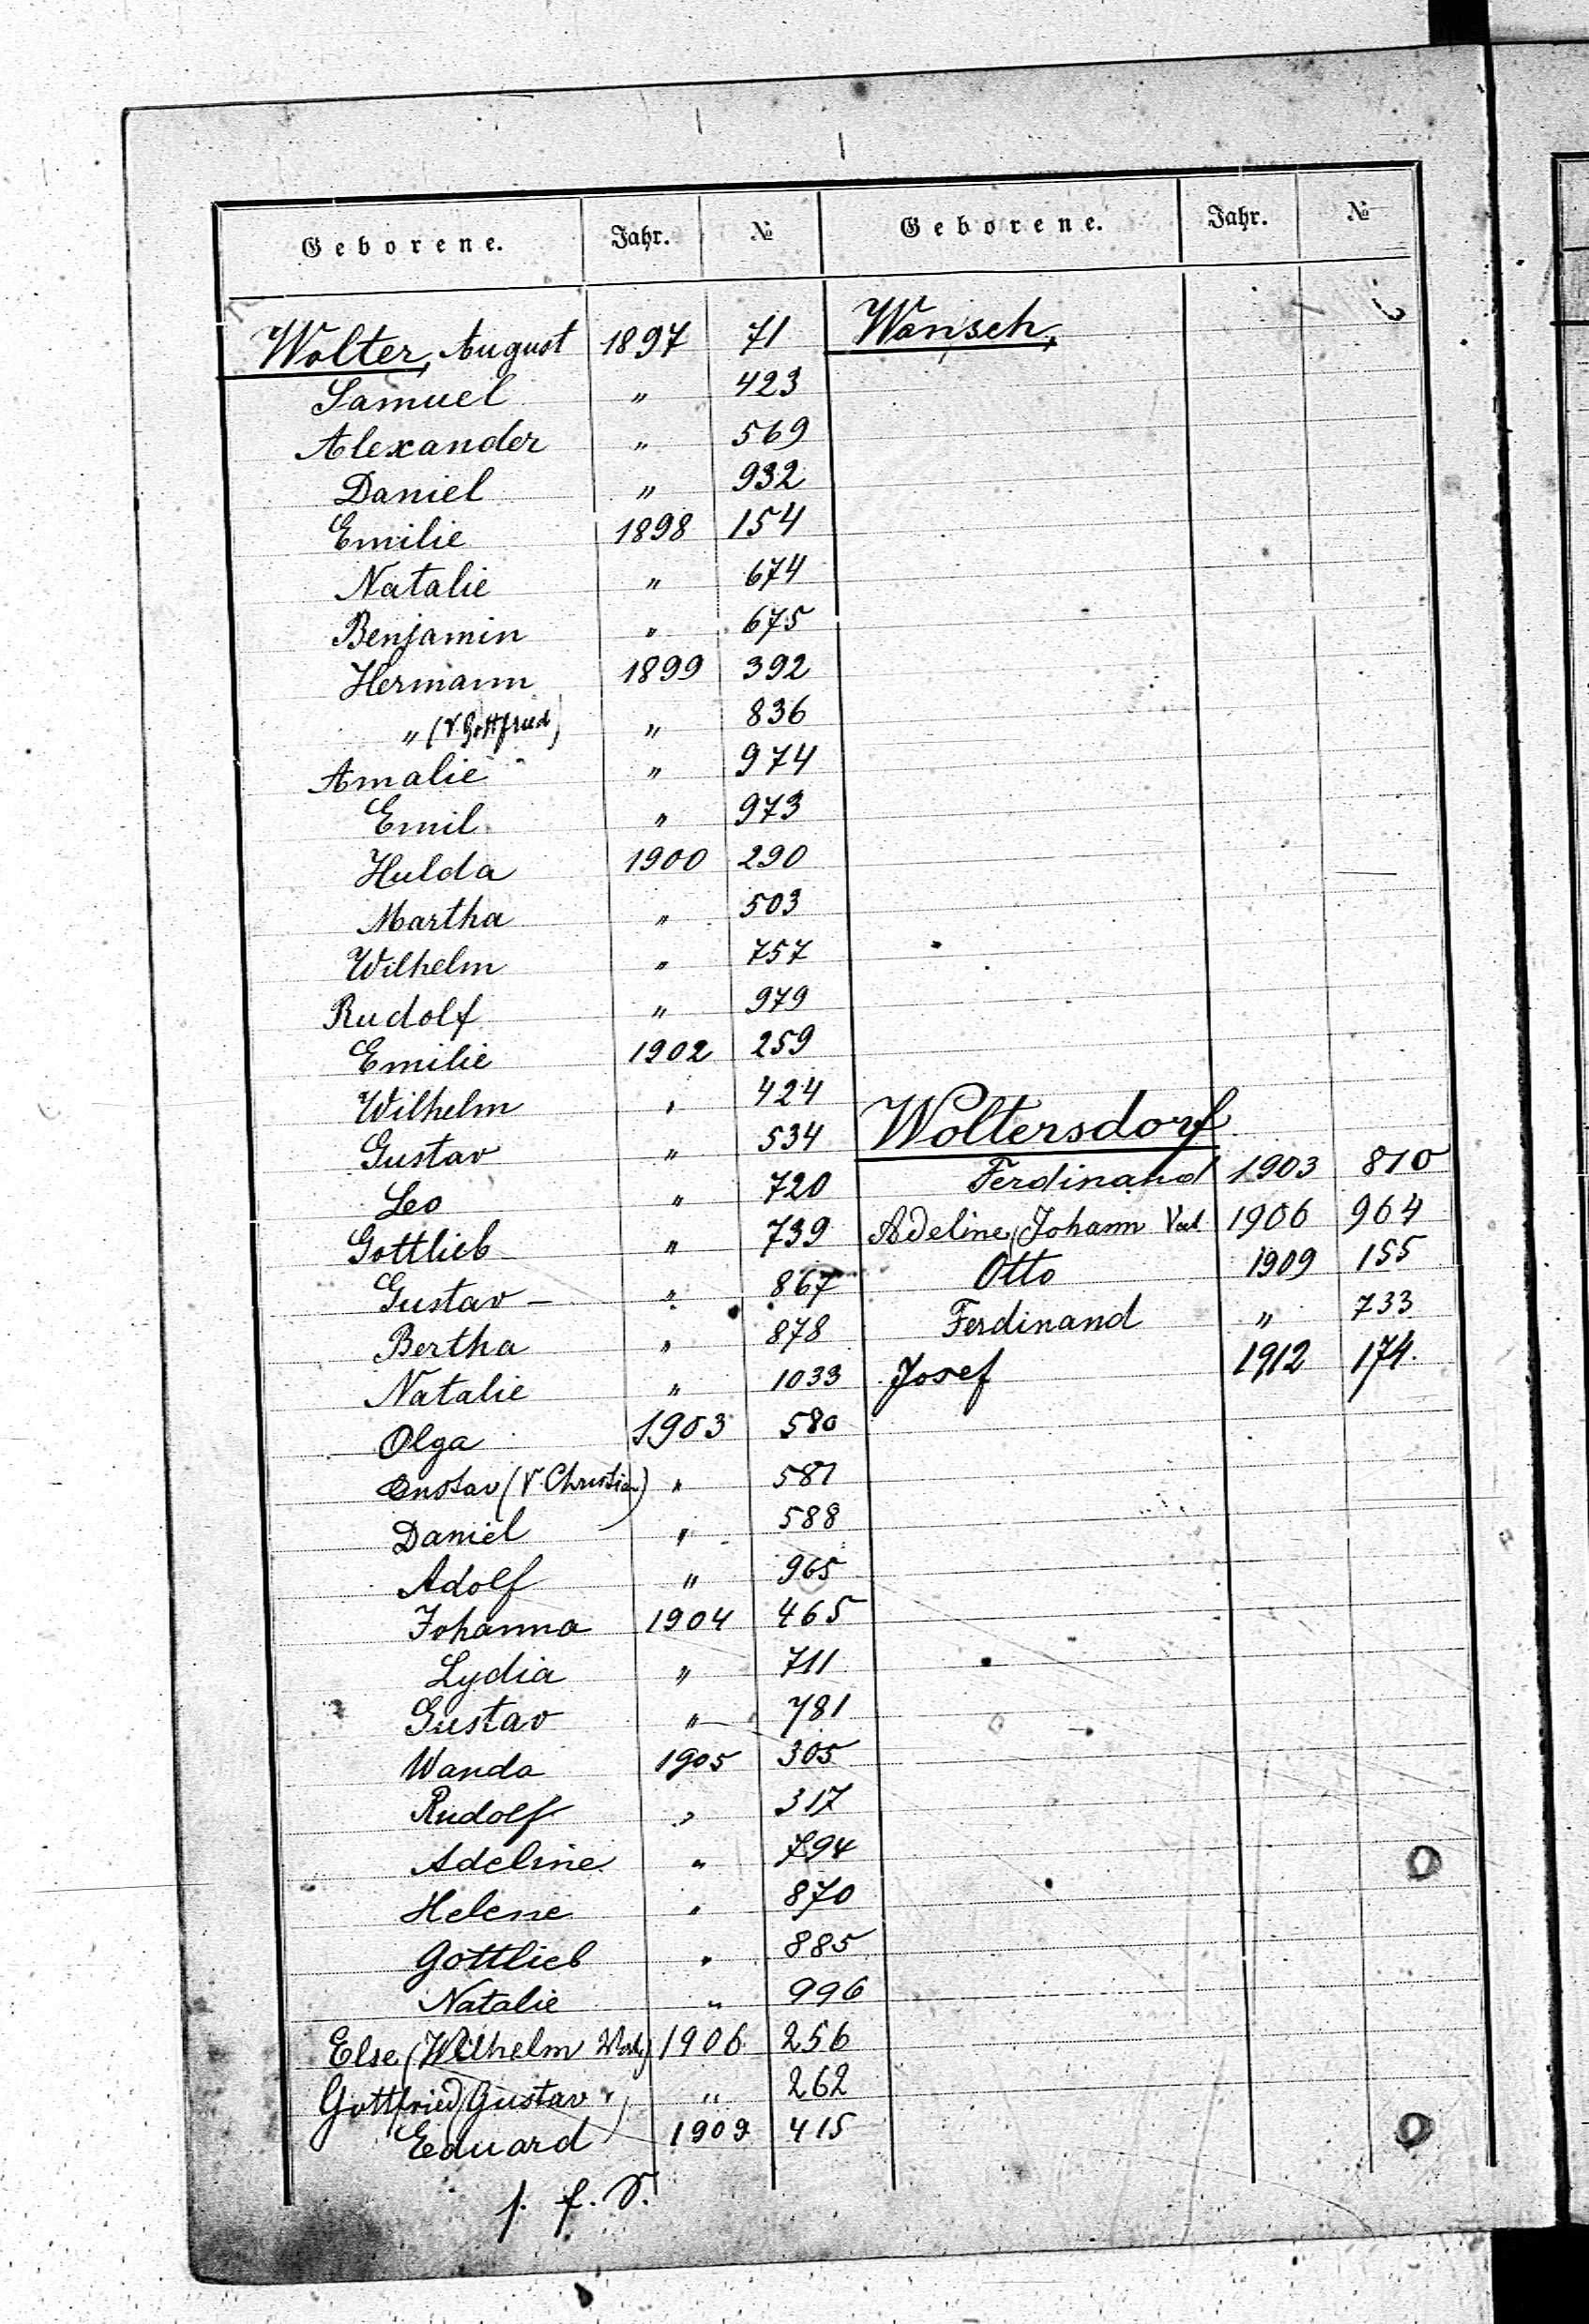 Geborene. Jahr. №
Wolter, August 1897 71
Samuel " 423
Alexander " 569
Daniel " 932
Emilie 1898 154
Natalie " 674
Benjamin " 675
Hermann 1899 392
" (V. Gottfried) " 836
Amalie " 974
Emil " 973
Hulda 1900 290
Martha " 503
Wilhelm " 757
Rudolf " 979
Emilie 1902 259
Wilhelm " 424
Gustav " 534
Leo " 720
Gottlieb " 739
Gustav - " 867
Bertha " 878
Natalie " 1033
Olga 1903 580
Gustav (V Christian) " 587
Daniel " 588
Adolf " 965
Johanna 1904 465
Lydia " 711
Gustav " 781
Wanda 1905 305
Rudolf " 317
Adeline " 794
Helene " 870
Gottlieb " 885
Natalie " 996
Else (Wilhelm 1906 256
Gottfried (Gustav " ) " 262
Eduard 1909 415
s. f. S.
Geborene. Jahr. №
Wonsch,
Woltersdorf
Ferdinand 1903 810
Adeline, Johann Vat. 1906 964
Otto 1909 155
Ferdinand " 733
Josef 1912 174.